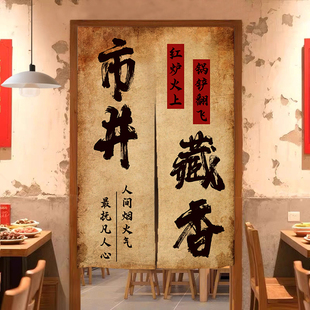 市井
藏香
锅铲翻飞
红炉火上
人间烟火气
最抚凡人心